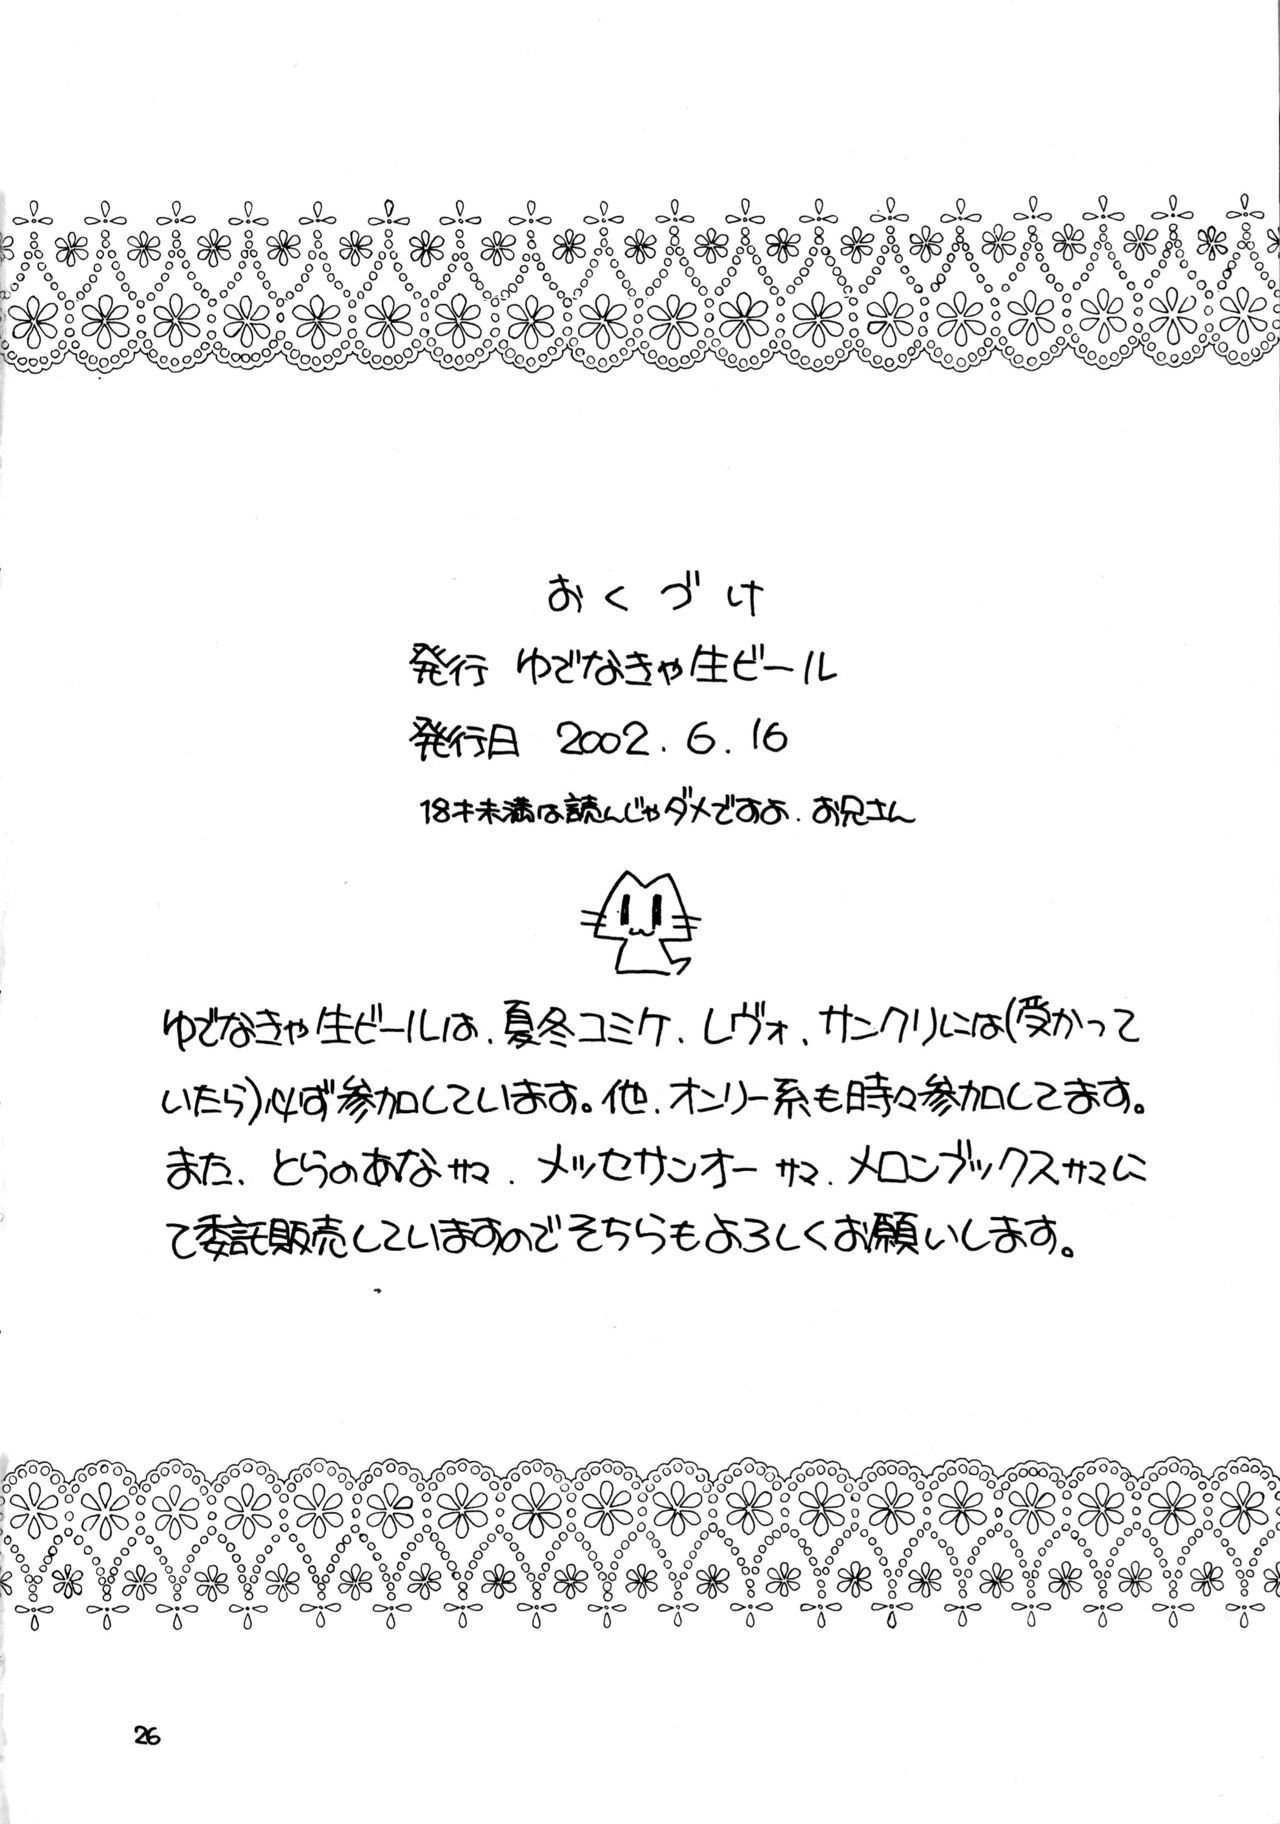 おくづけ
発行 ゆでなきゃ生ビール
発行日 2002.6.16
18才未満は読んじゃダメですよ、お兄さん
ゆでなきゃ生ビールは、夏冬コミケ、レヴォ、サンクリには(受かって
いたら)必ず参加しています。他、オンリー系も時々参加してます。
また、とらのあなサマ、メッセサンオーサマ、メロンブックスサマに
て委託販売していますのでそちらもよろしくお願いします。
26